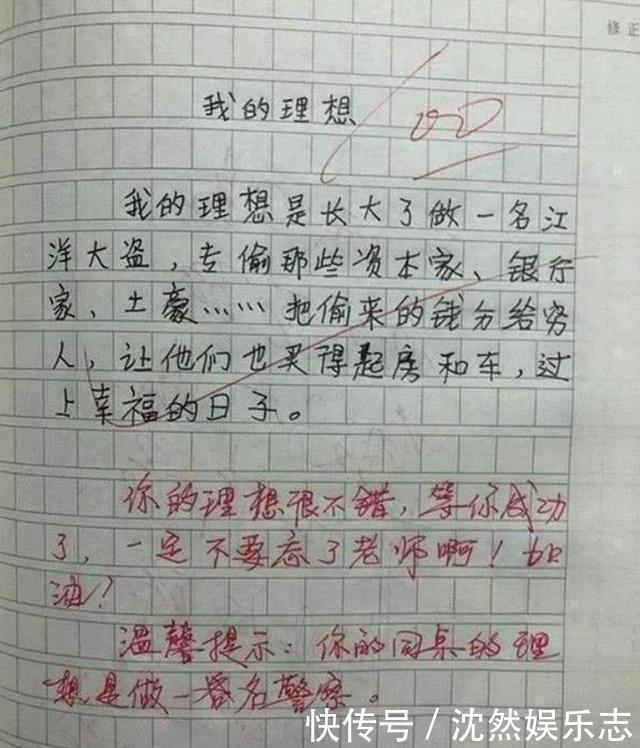 修正
我的理想
100
我的理想是长大了做一名江
洋大盗，专偷那些资本家、银行
家、土豪……把偷来的钱分给穷
人，让他们也买得起房和车，过
上幸福的日子。
你的理想很不错，等你成功
了，一定不要忘了老师啊！加
油！
温馨提示：你的同桌的理
想是做一名警察。
快传号／沈然娱乐志